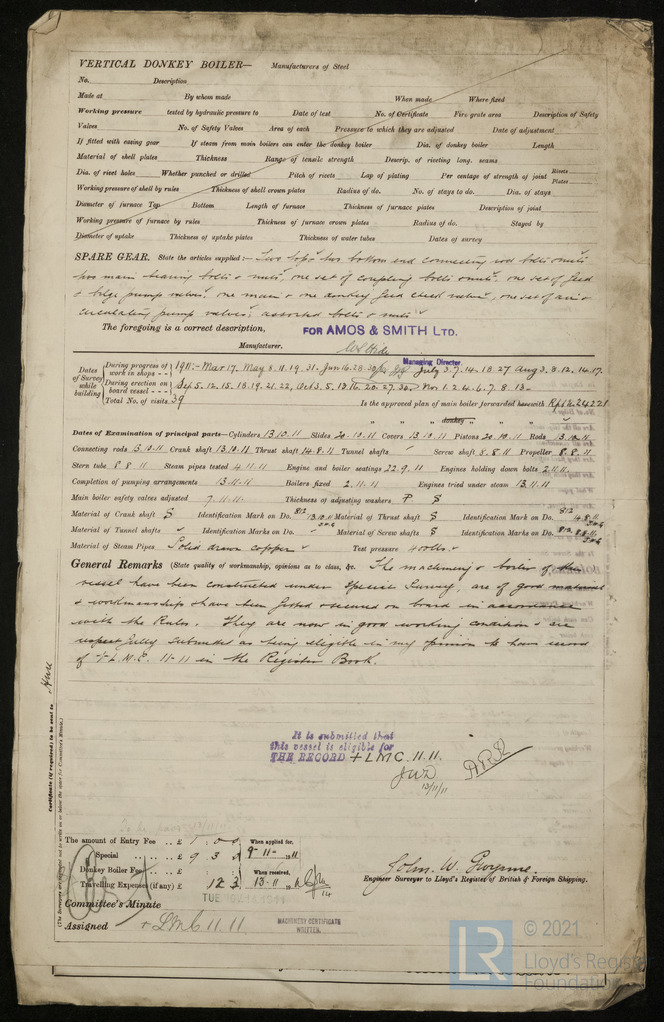 VERTICAL DONKEY BOILER— Manufacturers of Steel
No. Description
Made at By whom made When made Where fixed
Working pressure tested by hydraulic pressure to Date of test No. of Certificate Fire grate area Description of Safety
Valves No. of Safety Valves Area of each Pressure to which they are adjusted Date of adjustment
If fitted with easing gear If steam from main boilers can enter the donkey boiler Dia. of donkey boiler Length
Material of shell plates Thickness Range of tensile strength Descrip. of riveting long. seams
Dia. of rivet holes Whether punched or drilled Pitch of rivets Lap of plating Per centage of strength of joint Rivets Plates
Working pressure of shell by rules Thickness of shell crown plates Radius of do. No. of stays to do. Dia. of stays
Diameter of furnace Top Bottom Length of furnace Thickness of furnace plates Description of joint
Working pressure of furnace by rules Thickness of furnace crown plates Radius of do. Stayed by
Diameter of uptake Thickness of uptake plates Thickness of water tubes Dates of survey
SPARE GEAR. State the articles supplied:— Two top & two bottom end connecting rod bolts & nuts,
two main bearing bolts & nuts, one set of coupling bolts & nuts, one set of feed
& bilge pump valves, one main & one donkey feed check valve, one set of air &
circulating pump valves, assorted bolts & nuts
The foregoing is a correct description, FOR AMOS & SMITH LTD.
Manufacturer.
Managing Director.
Dates of Survey while building
During progress of work in shops - - 1911:- Mar 17, May 8. 11. 19. 31. Jun 16. 28. 30 July 3. 7. 14. 18. 27 Aug 3. 8. 12. 14. 17.
During erection on board vessel - - - Sep 5. 12. 15. 18. 19. 21. 22, Oct 3. 5. 13. 16. 20. 27. 30. Nov 1. 2. 4. 6. 7. 8. 13.
Total No. of visits 39 Is the approved plan of main boiler forwarded herewith
" " " donkey " " "
Dates of Examination of principal parts—Cylinders 13.10.11 Slides 20.10.11 Covers 13.10.11 Pistons 20.10.11 Rods 13.10.11
Connecting rods 13.10.11 Crank shaft 13.10.11 Thrust shaft 14.8.11 Tunnel shafts Screw shaft 8.8.11 Propeller 8.8.11
Stern tube 8.8.11 Steam pipes tested 4.11.11 Engine and boiler seatings 22.9.11 Engines holding down bolts 2.11.11.
Completion of pumping arrangements 13.11.11 Boilers fixed 2.11.11 Engines tried under steam 13.11.11
Main boiler safety valves adjusted 7.11.11. Thickness of adjusting washers P S
Material of Crank shaft S Identification Mark on Do. 812 13.10.11 Material of Thrust shaft S Identification Mark on Do. 812 14.8.11
Material of Tunnel shafts Identification Marks on Do. Material of Screw shafts S Identification Marks on Do. 812 8.8.11
Material of Steam Pipes Solid drawn copper Test pressure 400lbs.
General Remarks (State quality of workmanship, opinions as to class, &c. The machinery & boiler of this
vessel have been constructed under Special Survey, are of good material
& workmanship & have been fitted & secured on board in accordance
with the Rules. They are now in good working condition & are
respectfully submitted as being eligible in my opinion to have record
of + L.M.C. 11-11 in the Register Book.
Certificate (if required) to be sent to
(The Surveyors are requested not to write on or below the space for Committee's Minute.)
It is submitted that
this vessel is eligible for
THE RECORD + LMC 11.11.
13/11/11
The amount of Entry Fee .. £ 1. 0. 0 When applied for,
Special .. .. £ 9. 3. 9-11-1911
Donkey Boiler Fee .. .. £ When received,
Travelling Expenses (if any) £ 12. 3 13-11
John W. Gwynne.
Engineer Surveyor to Lloyd's Register of British & Foreign Shipping.
Committee's Minute TUE. NOV. 14 1911
Assigned + LMC 11.11
MACHINERY CERTIFICATE
WRITTEN.
LR
© 2021
Lloyd's Register
Foundation